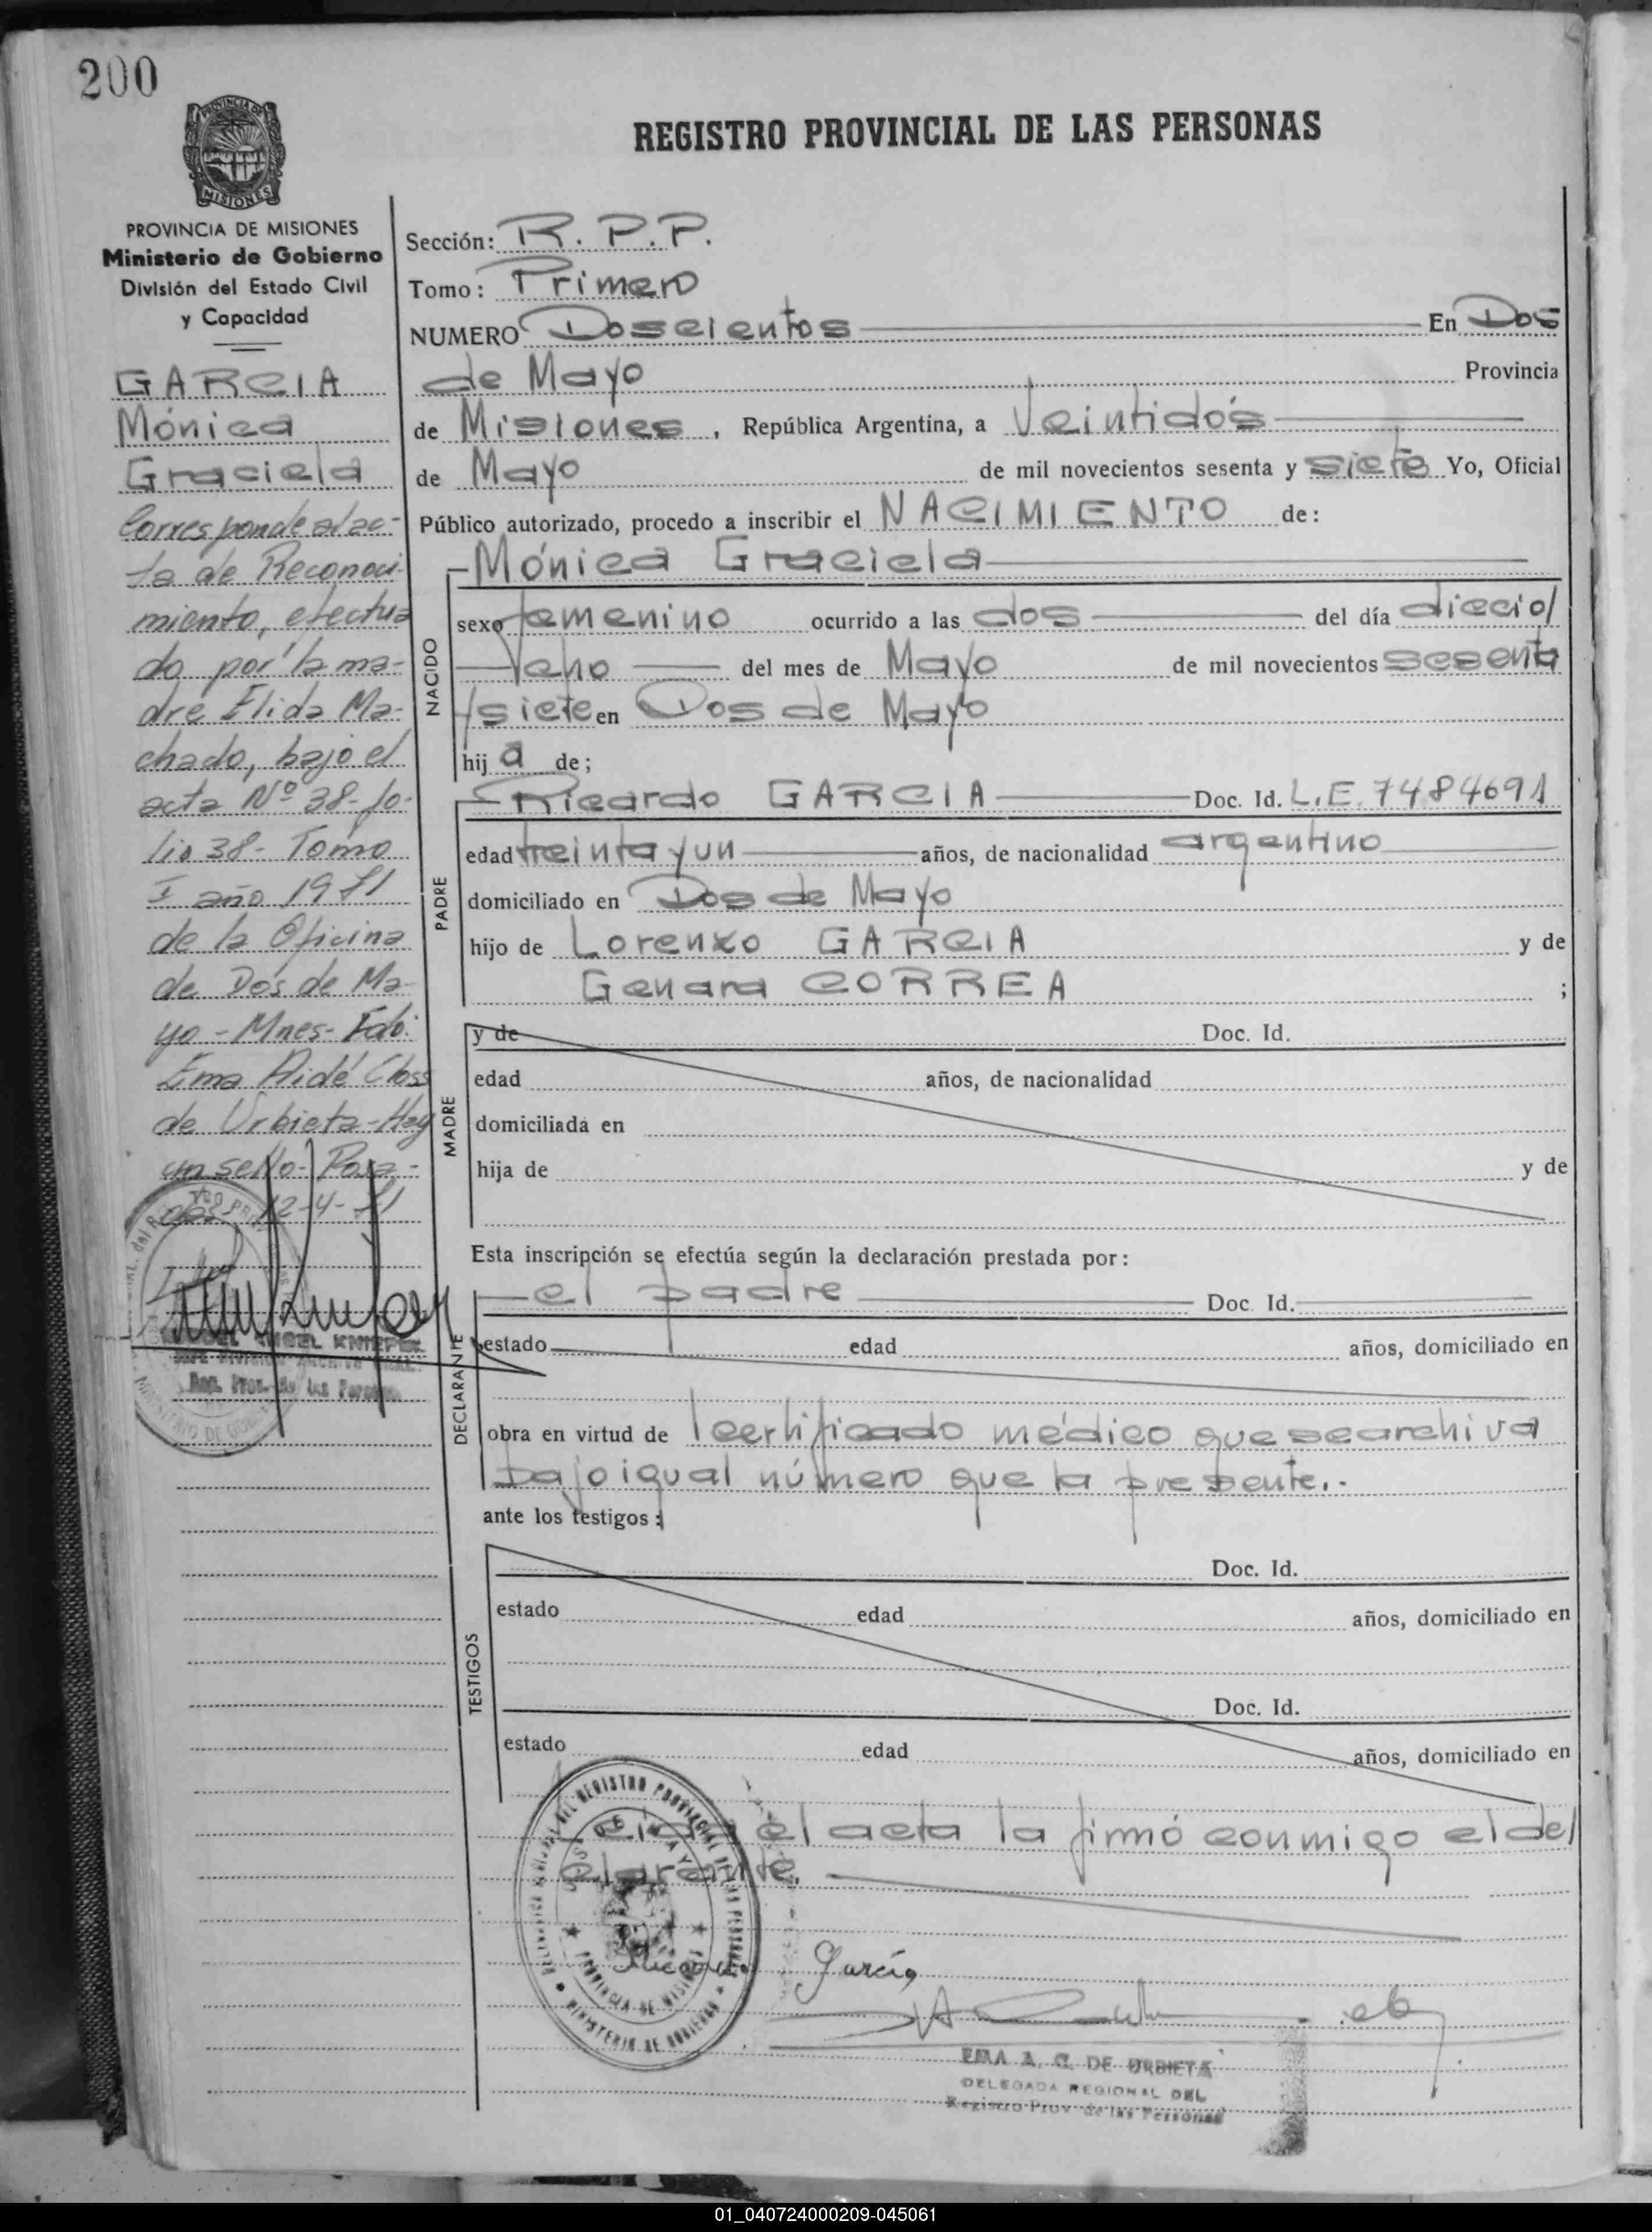 200
PROVINCIA DE
MISIONES
REGISTRO PROVINCIAL DE LAS PERSONAS
PROVINCIA DE MISIONES
Ministerio de Gobierno
División del Estado Civil
y Capacidad
GARCIA
Mónica
Graciela
Corresponde al ac-
ta de Reconoci-
miento, efectua
do por la ma-
dre Elida Ma-
chado, bajo el
acta Nº 38- fo-
lio 38- Tomo
I año 1971
de la Oficina
de Dos de Ma-
yo - Mnes- Fdo:
Ema Aidé Closs
de Urbieta- Hay
un sello- Posa-
das 12-4-71
ANGEL KNIEPER
Sección: R. P. P.
Tomo: Primero
NUMERO Doscientos En Dos
de Mayo Provincia
de Misiones, República Argentina, a Veintidós
de Mayo de mil novecientos sesenta y siete Yo, Oficial
Público autorizado, procedo a inscribir el NACIMIENTO de:
Mónica Graciela
NACIDO
sexo femenino ocurrido a las dos del día diecio/
/cho del mes de Mayo de mil novecientos sesenta
/siete en Dos de Mayo
hij a de;
PADRE
Ricardo GARCIA Doc. Id. L.E. 7484691
edad treinta y un años, de nacionalidad argentino
domiciliado en Dos de Mayo
hijo de Lorenzo GARCIA y de
Genara CORREA ;
MADRE
y de Doc. Id.
edad años, de nacionalidad
domiciliada en
hija de y de
Esta inscripción se efectúa según la declaración prestada por:
DECLARANTE
el padre Doc. Id.
estado edad años, domiciliado en
obra en virtud de /certificado médico que se archiva
bajo igual número que la presente.-
ante los testigos:
TESTIGOS
Doc. Id.
estado edad años, domiciliado en
Doc. Id.
estado edad años, domiciliado en
el acta la firmó conmigo el de/
clarante.
Ricardo García
EMA A. C. DE URBIETA
DELEGADA REGIONAL DEL
Registro Prov de las Personas
01_040724000209-045061